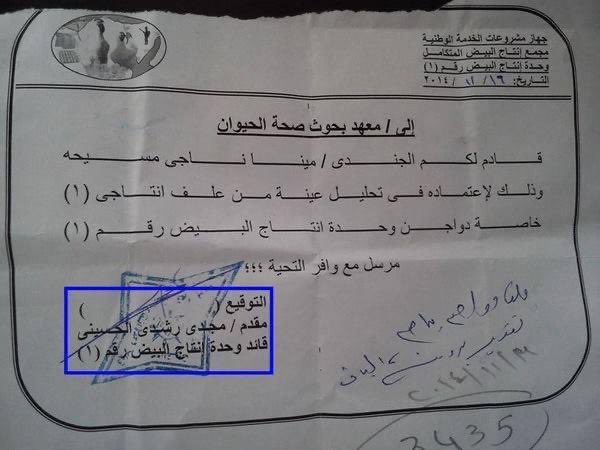 جهاز مشروعات الخدمة الوطنية
مجمع إنتاج البيض المتكامل
وحدة إنتاج البيض رقم (١)
التاريخ: ١٦ / ١١ / ٢٠١٤
إلى / معهد بحوث صحة الحيوان
قادم لكم الجندى / مينا ناجى مسيحه
وذلك لإعتماده فى تحليل عينة من علف انتاجى (١)
خاصة دواجن وحدة انتاج البيض رقم (١)
مرسل مع وافر التحية ؛؛؛
التوقيع ( )
مقدم / مجدى رشدى الحسينى
قائد وحدة إنتاج البيض رقم (١)
تقدير بروتين
3435